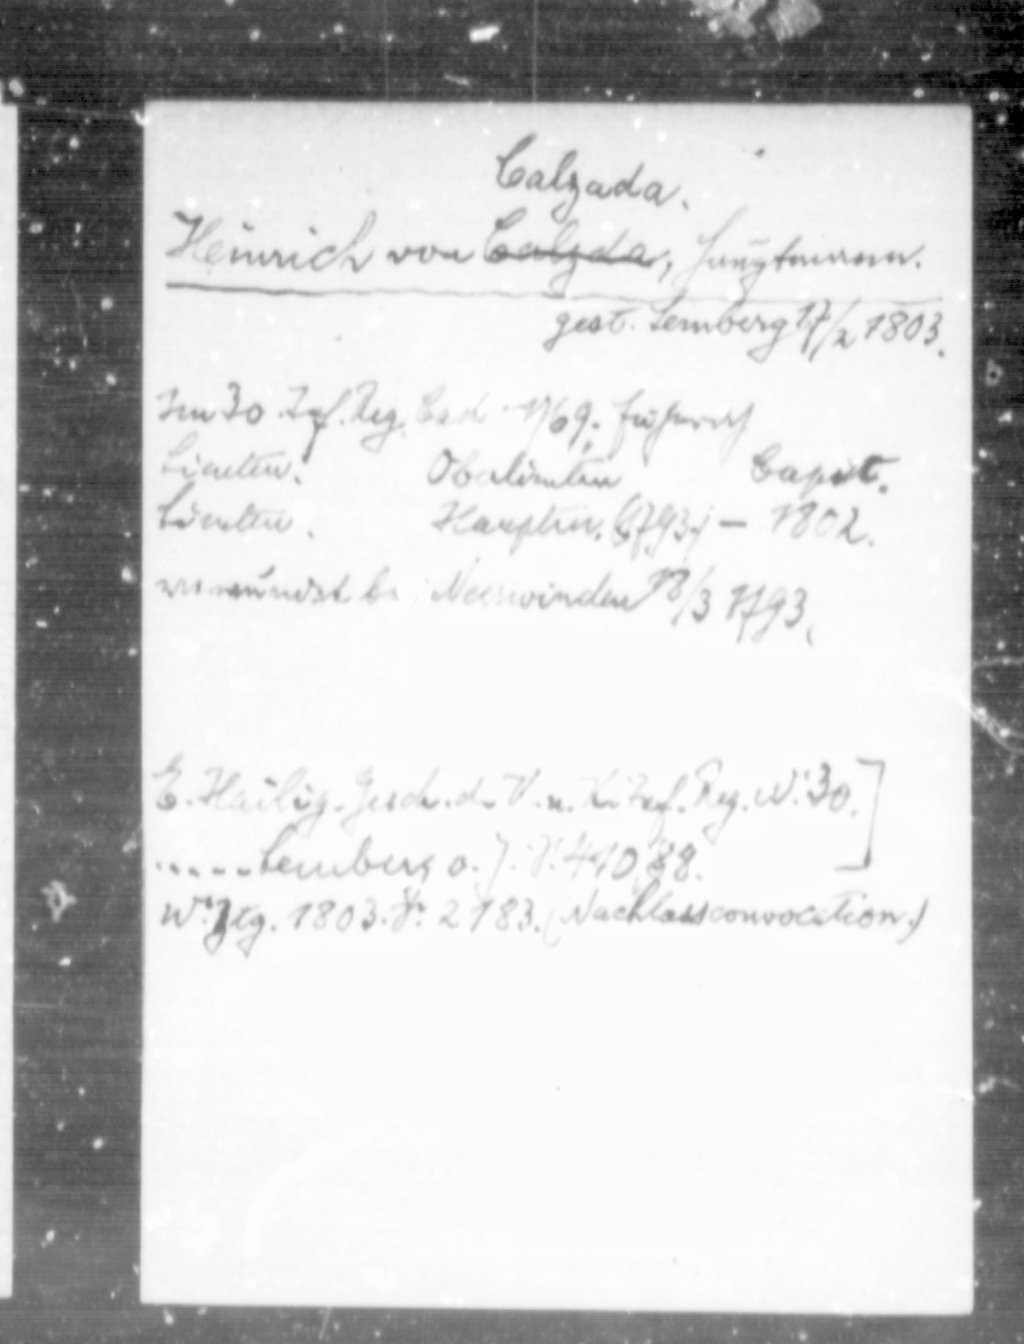 Calzada.
Heinrich von Calzda, Hauptmann.
gest. Lemberg 17/2 1803.
Im 30. Inf. Reg. Cad. 1769. Fähnrich
Lieuten. Oberlieuten Capit.
Lieuten. Hauptm. (1793) – 1802.
verwundet bei Neerwinden 18/3 1793.
E. Hailig. Gesch. d. K. u. K. Inf. Reg. N. 30.]
..... Lemberg o. J. S. 410, 88.
W. Ztg. 1803. S. 2183. (Nachlassconvocation.)